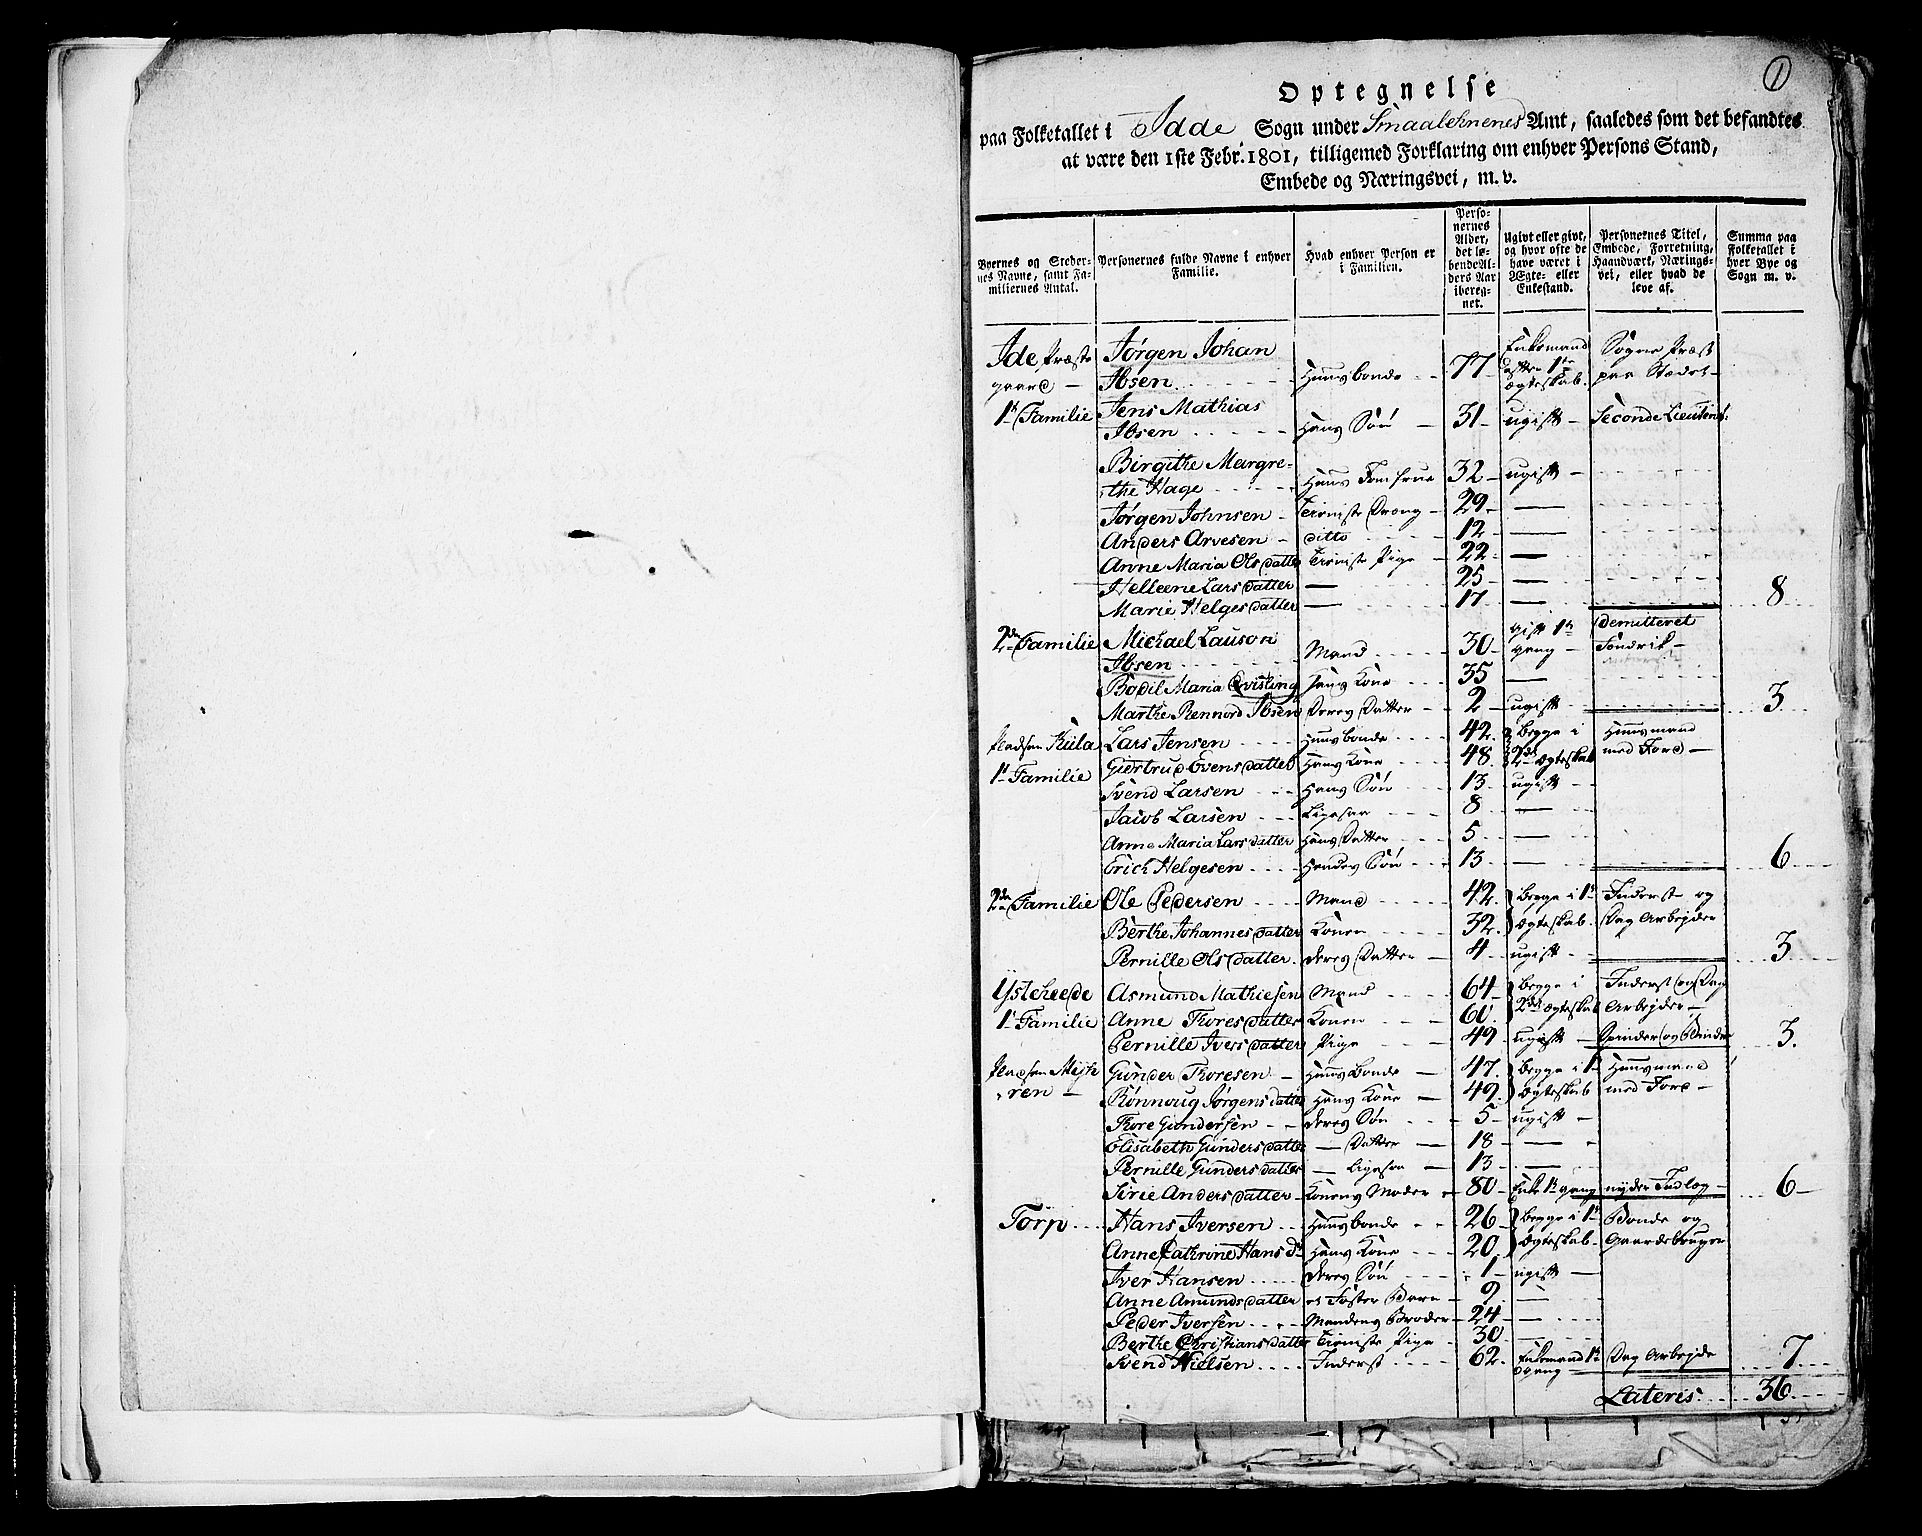 1
Optegnelse
paa Folketallet i Idde Sogn under Smaalehnenes Amt, saaledes som det befandtes
at være den 1ste Febr. 1801, tilligemed Forklaring om enhver Persons Stand,
Embede og Næringsvei, m. v.
Byernes og Steder-nes Navne, samt Fa-miliernes Antal. | Personernes fulde Navne i enhver Familie. | Hvad enhver Person er i Familien. | Perso-nernes Alder, det lø-bende Al-ders Aar iberegnet. | Ugivt eller givt, og hvor ofte de have været i Ægte- eller Enkestand. | Personernes Titel, Embede, Forretning, Haandværk, Nærings-vei, eller hvad de leve af. | Summa paa Folketallet i hver Bye og Sogn m. v.
Ide Præste Jørgen Johan Enkemand Sogne Præst
gaard Ibsen Huusbonde 77 efter 1te ægteskab paa Stædet
1t Familie Jens Mathias
Ibsen Hans Søn 31 ugift Seconde Lieutn:
Birgithe Margre-
the Hage Huus Jomfrue 32 ugift
Jørgen Johnsen Tieniste Dreng 29
Anders Arvesen ditto 12
Anne Maria Olsdatter Tieniste Pige 22
Helleene Larsdatter 25
Marie Helgesdatter 17 8
2de Familie Michael Lauson gift 1te Demitteret
Ibsen Mand 30 gang Fendrik
Bodil Maria Qvisling Hans Kone 35
Marthe Rennord Ibsen Deres Datter 2 ugift 3
Pladsen Kula Lars Jensen Huusbonde 42 begge i Huusmand
Giertrud Evensdatter Hans Kone 48 2det Ægteskab med Jord
1t Familie Svend Larsen Hans Søn 13 ugift
Jacob Larsen Ligesaa 8
Anne Maria Larsdatter Hans Datter 5
Erich Helgesen Hendes Søn 13 6
2de Familie Ole Pedersen Mand 42 begge i 1te Inderst og
Berthe Johannesdatter Konen 32 Ægteskab Dag Arbejder
Pernille Olsdatter deres Datter 4 ugift 3
Ysteheede Asmund Mathiesen Mand 64 begge i Inderst og Dag
1t Familie Anne Thoresdatter Konen 60 2det Ægteskab Arbejder
Pernille Iversdatter Pige 49 ugift Spinder og Binder 3.
Pladsen Mejte Gunder Thoresen Huusbonde 47 begge i 1te Huusmand
ren Rønnoug Jørgensdatter Hans Kone 49 Ægteskab med Jord
Thore Gundersen deres Søn 5 ugift
Elisabeth Gundersdatter Datter 18
Pernille Gundersdatter Ligesaa 13
Sirie Andersdatter Konens Moder 80 Enke 1te gang nyder Indlæg 6
Torp Hans Iversen Huusbonde 26 begge i 1te Bonde og
Anne Cathrine Hans Dr Hans Kone 20 Ægteskab Gaardebruger
Iver Hansen deres Søn 1 ugift
Anne Amundsdatter et Foster Barn 9
Peder Iversen Mandens Broder 24
Berthe Christiansdatter Tieniste Pige 30
Svend Nielsen Inderst 62 Enkemand 1te gang Dag Arbejde 7
Lateris 36